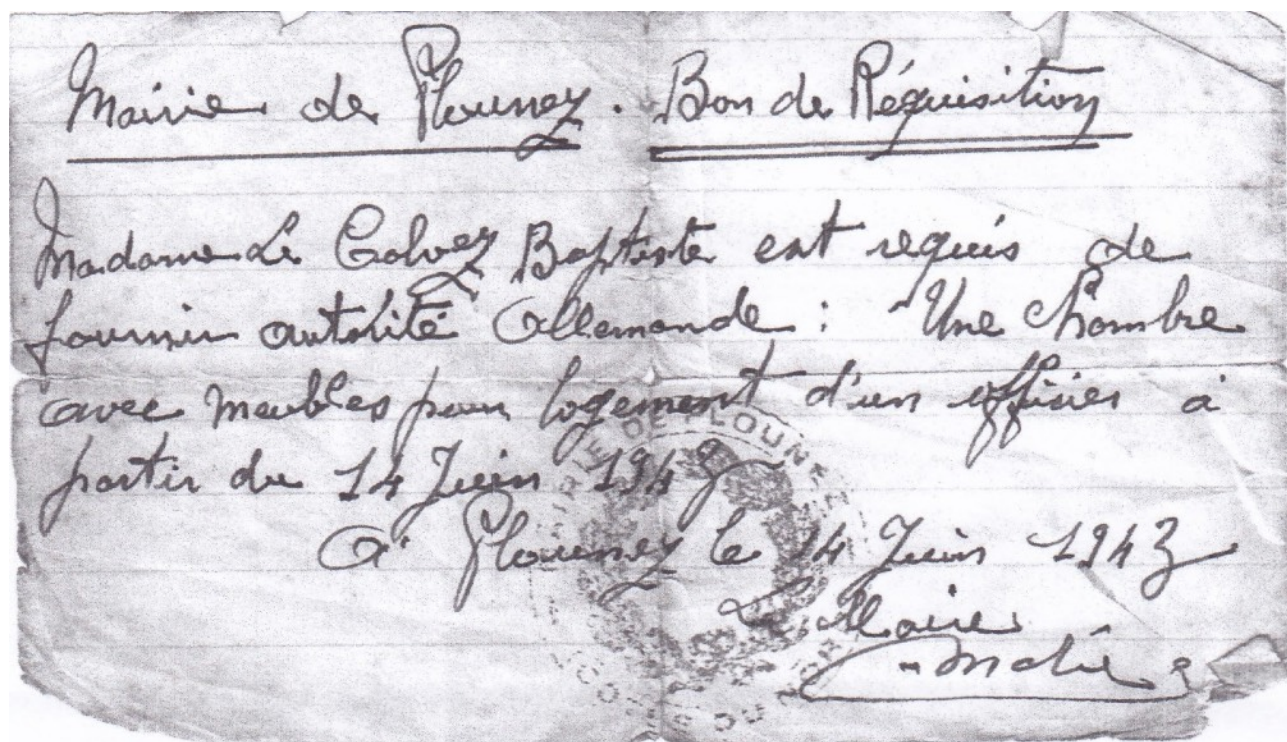 Mairie de Plounez. Bon de Réquisition
Madame Le Calvez Baptiste est requis de
fournir autorité Allemande : Une Chambre
avec meubles pour logement d'un officier à
partir du 14 Juin 1943
A Plounez le 14 Juin 1943
Le Maire
MAIRIE DE PLOUNEZ
CÔTES DU NORD